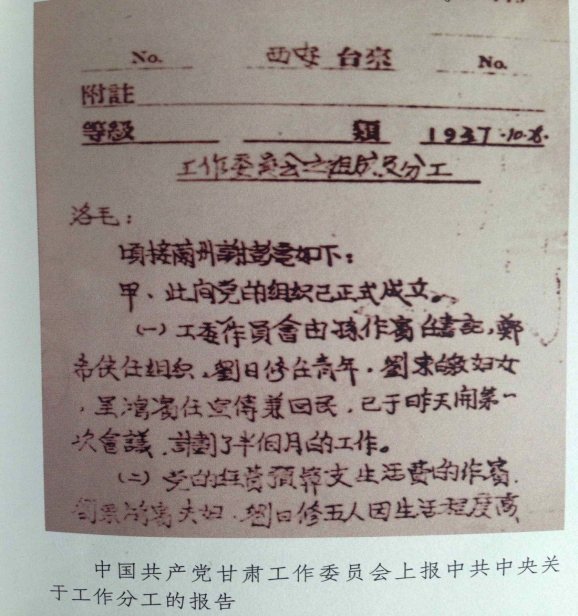 No. 西安 台来 No.
附註
等級 類 1937.10.8.
工作委員会之組成及分工
洛毛：
頃接蘭州謝彭電如下：
甲、此间党的组织已正式成立。
（一）工委作員會由孫作賓任書記，鄭
希侠任组织，劉日修任青年，劉 婦女
，吴鴻賓任宣傳兼回民，已于昨天開第一
次會議，計劃了半個月的工作。
（二）党的经费預算支生活費的作賓．
夫妇．劉日修五人因生活程度高
中国共产党甘肃工作委员会上报中共中央关
于工作分工的报告